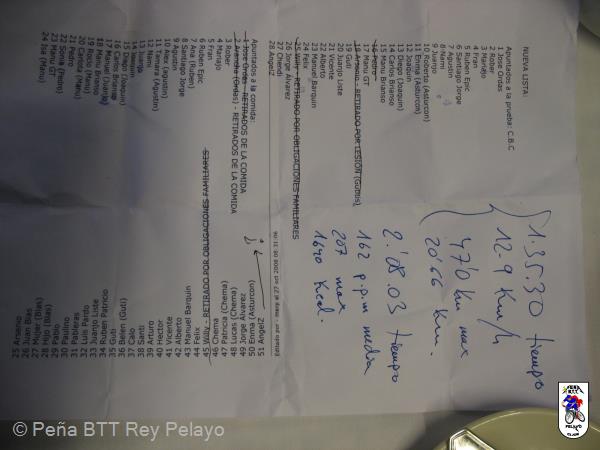 NUEVA LISTA:
Apuntados a la prueba: C.B.C
1 Jose Ordas
2 Rober
3 Mariajo
4 Fran
5 Ruben Epic
6 Santiago Jorge
7 Agustin
8 Nami
9 Juanjo
10 Roberto (Asturcon)
11 Emma (Asturcon)
12 Joaquin
13 Diego (Joaquin)
14 Carlos Brianso
15 Manu Brianso
16 Pedro
17 Manu GT
18 Arsenio - RETIRADO POR LESIÓN (Gubus)
19 Guti
20 Juanjo Liste
21 Vicente
22 Alberto
23 Manuel Barquin
24 Felix
25 Willy - RETIRADO POR OBLIGACIONES FAMILIARES
26 Jorge Álvarez
27 Chendi
28 Angelz
Apuntados a la comida:
1 Jose Ordas - RETIRADOS DE LA COMIDA
2 (Ordas) - RETIRADOS DE LA COMIDA
3 Rober
4 Mariajo
5 Fran
6 Ruben Epic
7 Ana (Ruben)
8 Santiago Jorge
9 Agustin
10 Alex (Agustin)
11 Tamara (Agustin)
12 Nami
13
14 Joaquin
15 Diego (Joaquin)
16 Carlos Brianso
17 Manuel (Juanjo)
18 Manu Brianso
19 Rocio (Manu)
20 Carlota (Manu)
21 Pedro
22 Sonia (Pedro)
23 Manu GT
24 Isa (Manu)
25 Arsenio
26 Juan Blas
27 Mujer (Blas)
28 Hijo (Blas)
29 Pablo
30 Paulino
31 Pablieras
32 Luis Pardo
33 Juanjo Liste
34 Ruben Patricio
35 Guti
36 Belen (Guti)
37 Calo
38 Santi
39 Arturo
40 Hector
41 Vicente
42 Alberto
43 Manuel Barquin
44 Felix
45 Willy - RETIRADO POR OBLIGACIONES FAMILIARES
46 Chema
47 Patricia (Chema)
48 Lucas (Chema)
49 Jorge Alvarez
50 Emma (Asturcon)
51 Angelz
1.35.30 tiempo
12.9 Km/h
47'0 km max
20'66 km.
2.08.03 tiempo
162 p.p.m media
207 max
1640 Kcal.
PEÑA
BTT
PELAYO
© Peña BTT Rey Pelayo